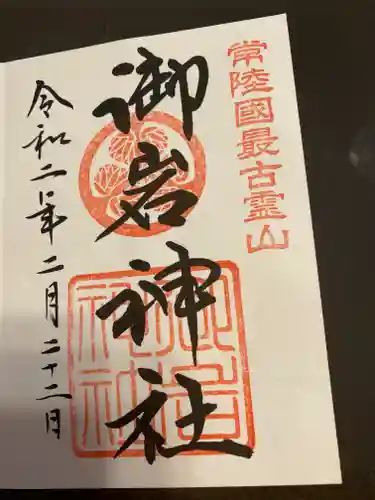 常陸國最古霊山
御岩神社
御岩神社
令和二年二月二十二日